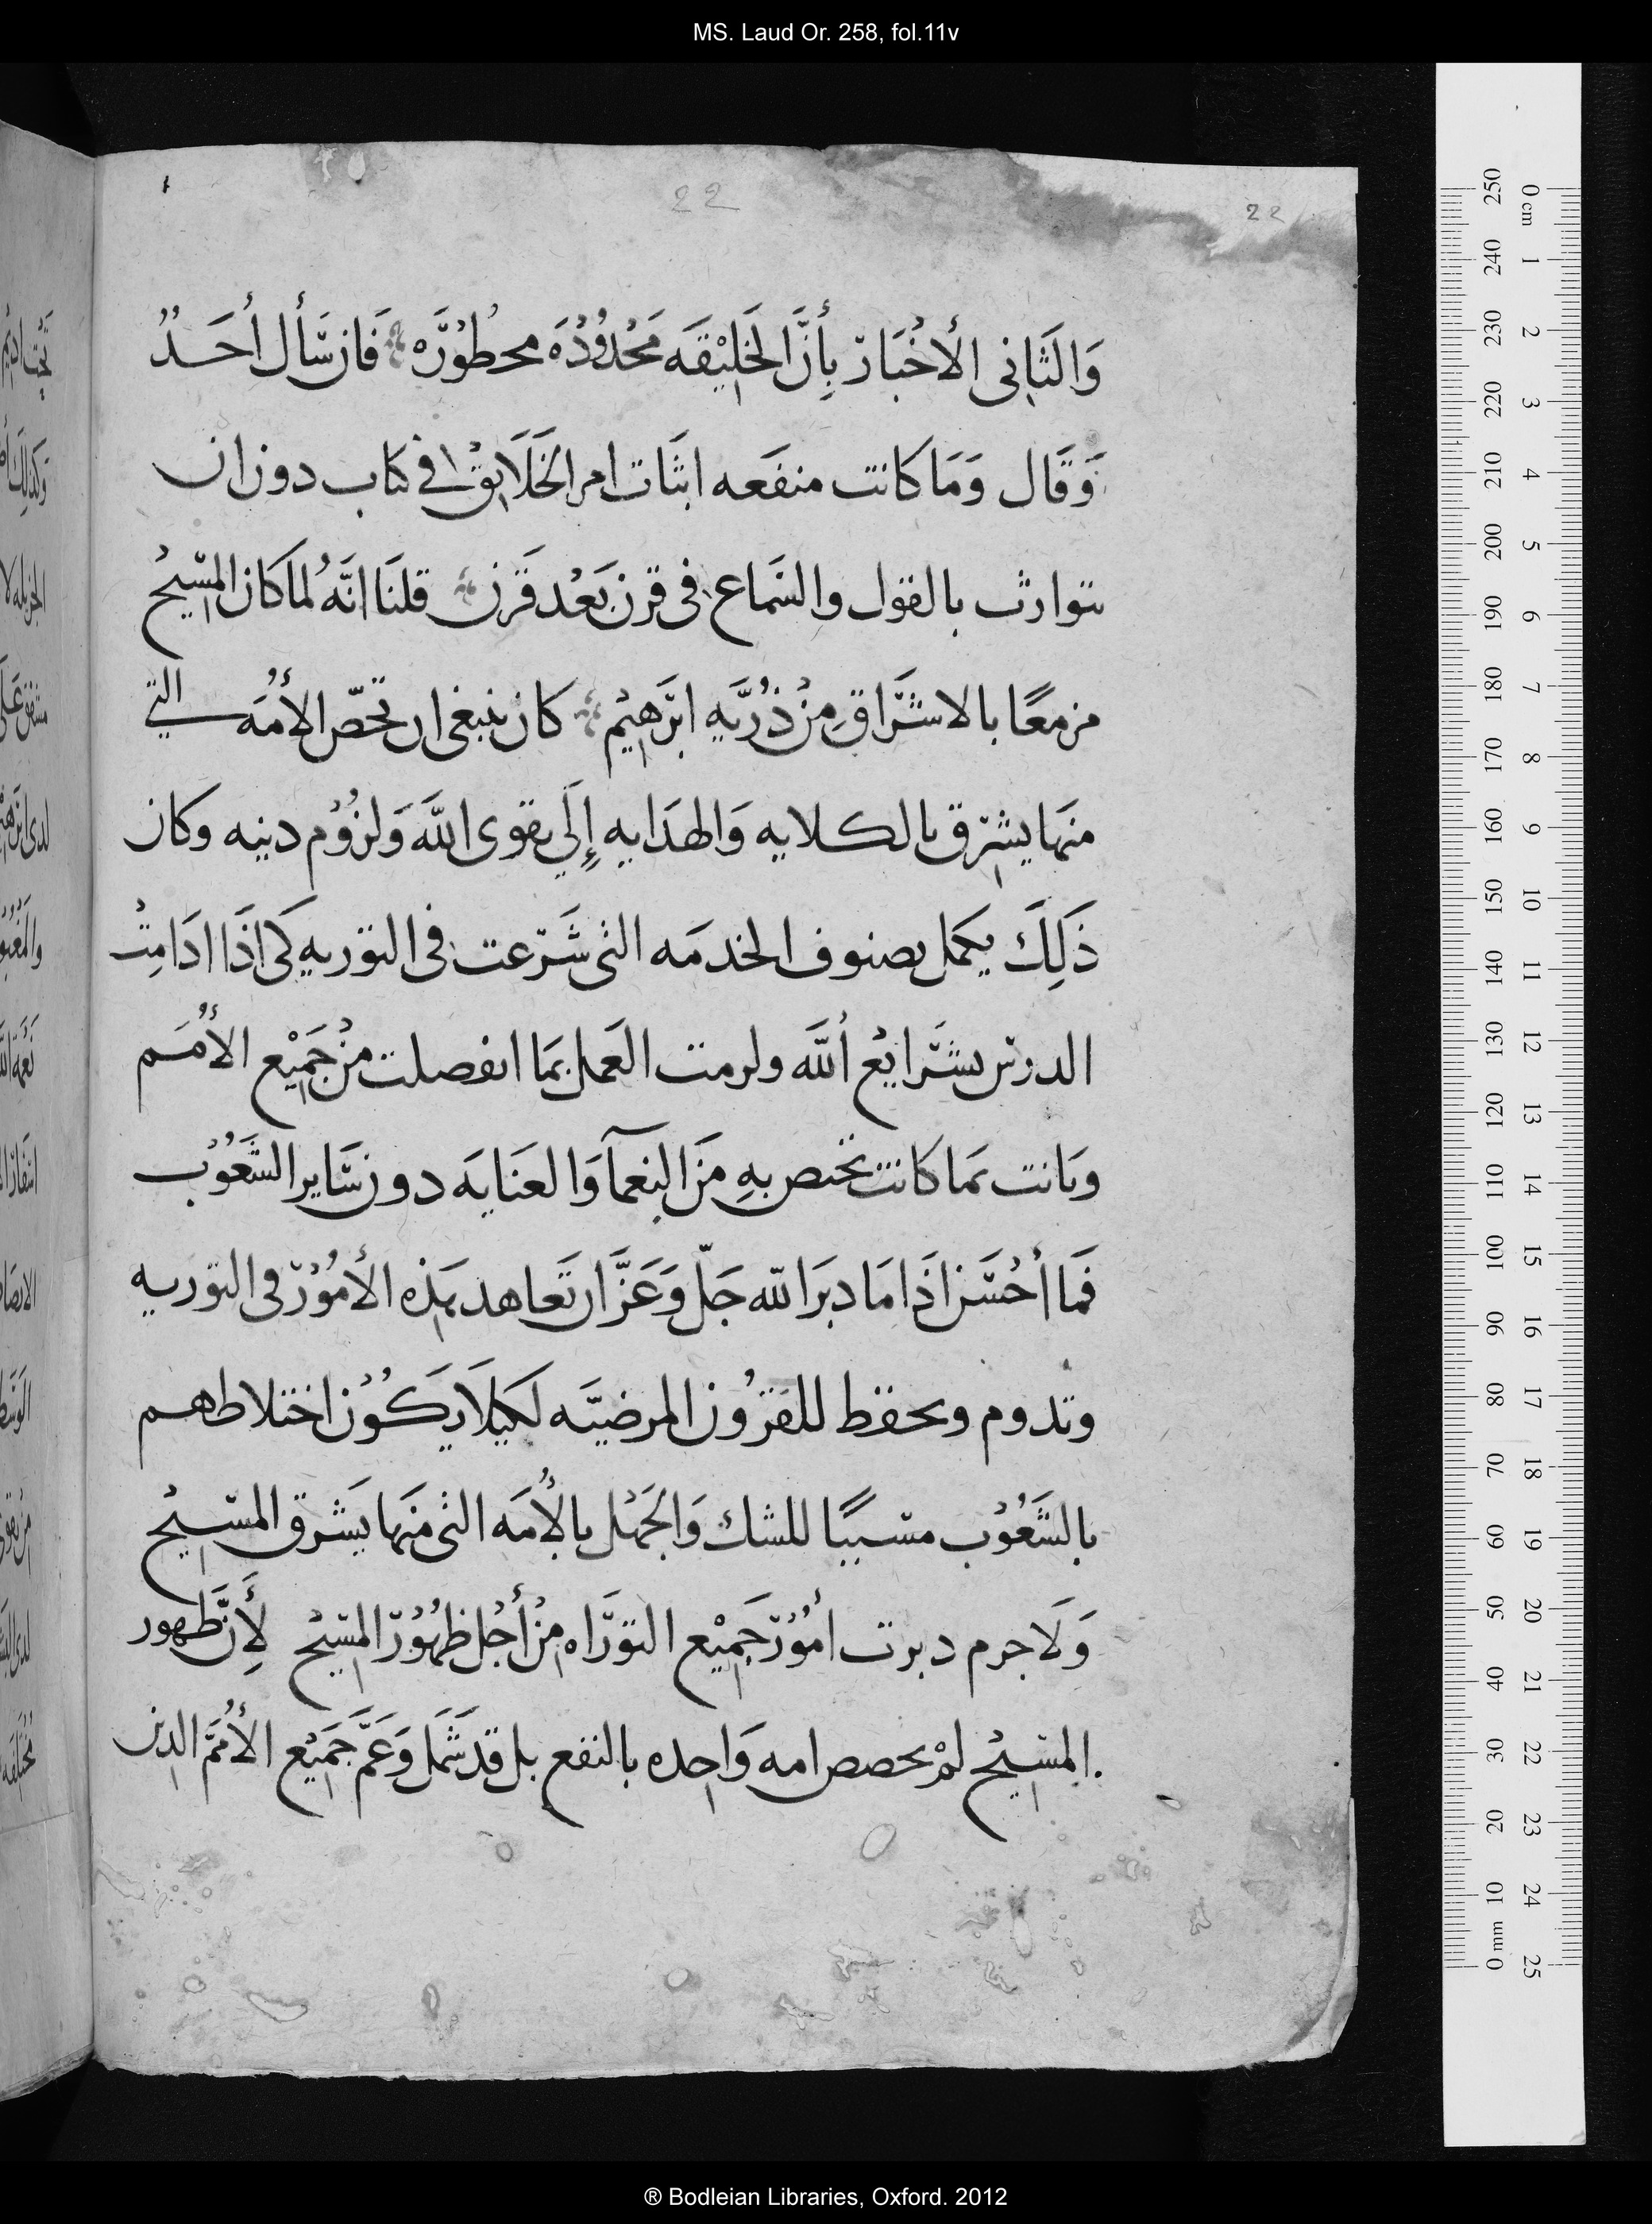 MS. Laud Or. 258, fol.11v
22
22
وَالثَانِى الأخْبَار بِأنَّ الخَلِيْقَه مَحْدُوْدُه محطُوْرَه فَان سَأل أحَدُ
وَقَال وَمَا كانت منفَعه اثبَات امر الخَلَايقْ فى كتاب دون ان
تتوارث بالقول والسَماع فى قرن بَعْد قَرن قلنَا انَّهُ لما كان المسِيحْ
مزمعًا بالاشْرَاقِ مِنْ ذُرِّيَه ابرَهِيْم كان ينبغى ان تخصّ الأمُه التي
منهَا يشرق بالكلايه وَالهدَايه إلَي تقوى اللَّه وَلزُوْم دينه وكان
ذَلِكَ يكمل بصنوف الخدمَه التى شَرعت فى التوريه كى اذَا ادَامِتْ
الدرس بشَرايْع اللَّه ولزمت العَمل بمَا انفصلت منْ جَمِيْع الأُمَم
وبَانت بمَا كَانت تختص بهِ منَ النعمآ وَالعنَايَه دون سَاير الشُعُوْب
فمَا أحْسَن اذَا مَا دبرَ اللّه جَلّ وَعَزَّ ان تَعاهد بهَذه الأمُوْر فى التوريه
وتدوم وتحفظ للقرُون المرضيَّه لكيْلَا يَكُوْن اختلاطهم
بالشُعُوْب مسببًا للشك وَالجَهْل بالأُمَه التى منَهَا يشرق المسِيحْ
وَلَا جرم دبرت امُوْر جَمِيْع التورَاه مِنْ أجْل ظهُوْر المسِيحْ لِأنَّ ظهور
المسِيحْ لمْ يخصص امه وَاحِده بالنفع بل قد شَمَل وَعَمَّ جَمِيْع الأُمَم الدين
® Bodleian Libraries, Oxford. 2012